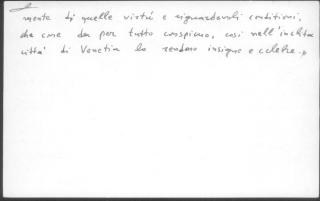 mente di quelle virtù e riguardevoli conditioni,
che come da per tutto cospicuo, così nell'inclita
città di Venetia lo rendono insigne e celebre.